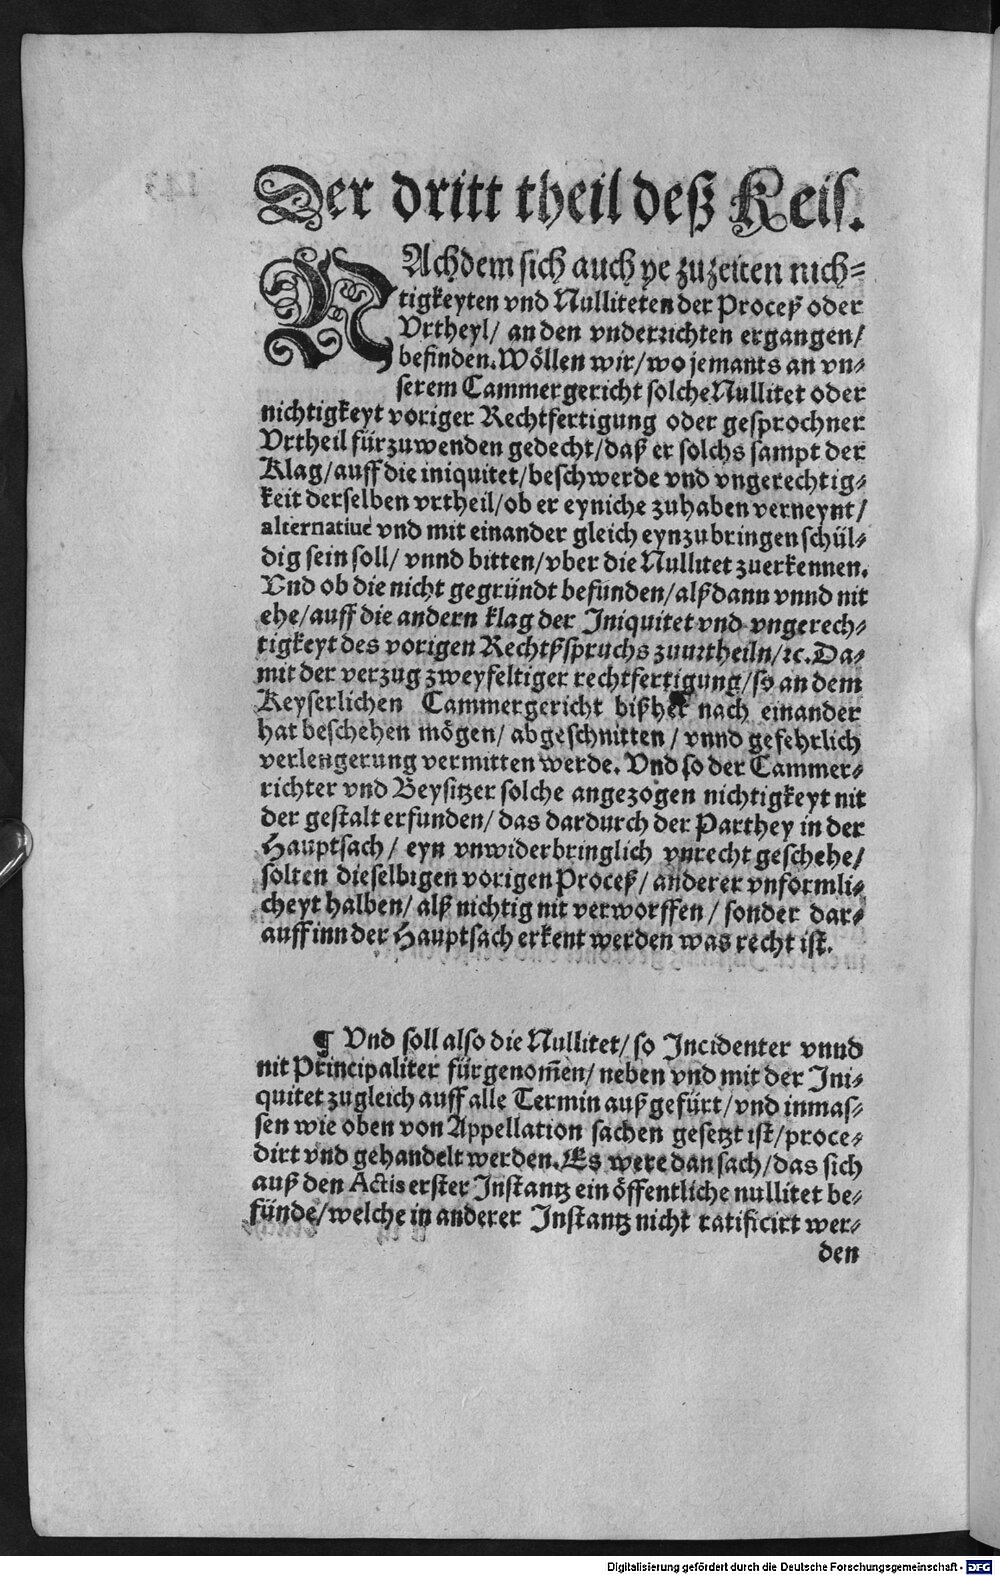 Der dritt theil deß Keis.
NAchdem sich auch ye zuzeiten nich⸗
tigkeyten vnd Nulliteten der Proceß oder
Vrtheyl/ an den vnderrichten ergangen/
befinden. Wöllen wir/ wo jemants an vn⸗
serem Cammergericht solche Nullitet oder
nichtigkeyt voriger Rechtfertigung oder gesprochner
Vrtheil fürzuwenden gedecht/ daß er solchs sampt der
Klag/ auff die iniquitet/ beschwerde vnd vngerechtig⸗
keit derselben vrtheil/ ob er eyniche zuhaben verneynt/
alternatiuè vnd mit einander gleich eynzubringen schül⸗
dig sein soll/ vnnd bitten/ vber die Nullitet zuerkennen.
Vnd ob die nicht gegründt befunden/ alß dann vnnd nit
ehe/ auff die andern klag der Iniquitet vnd vngerech⸗
tigkeyt des vorigen Rechtßspruchs zuurtheiln/ ꝛc. Da⸗
mit der verzug zweyfeltiger rechtfertigung/ so an dem
Keyserlichen Cammergericht bißher nach einander
hat beschehen mögen/ abgeschnitten/ vnnd gefehrlich
verlengerung vermitten werde. Vnd so der Cammer⸗
richter vnd Beysitzer solche angezogen nichtigkeyt nit
der gestalt erfunden/ das dardurch der Parthey in der
Hauptsach/ eyn vnwiderbringlich vnrecht geschehe/
solten dieselbigen vorigen Proceß/ anderer vnformli⸗
cheyt halben/ alß nichtig nit verworffen/ sonder dar⸗
auff inn der Hauptsach erkent werden was recht ist.
¶ Vnd soll also die Nullitet/ so Incidenter vnnd
nit Principaliter fürgenom̄en/ neben vnd mit der Ini⸗
quitet zugleich auff alle Termin außgefürt/ vnd inmas⸗
sen wie oben von Appellation sachen gesetzt ist/ proce⸗
dirt vnd gehandelt werden. Es were dan sach/ das sich
auß den Actis erster Instantz ein öffentliche nullitet be⸗
fünde/ welche in anderer Instantz nicht ratificirt wer⸗
den
Digitalisierung gefördert durch die Deutsche Forschungsgemeinschaft - DFG